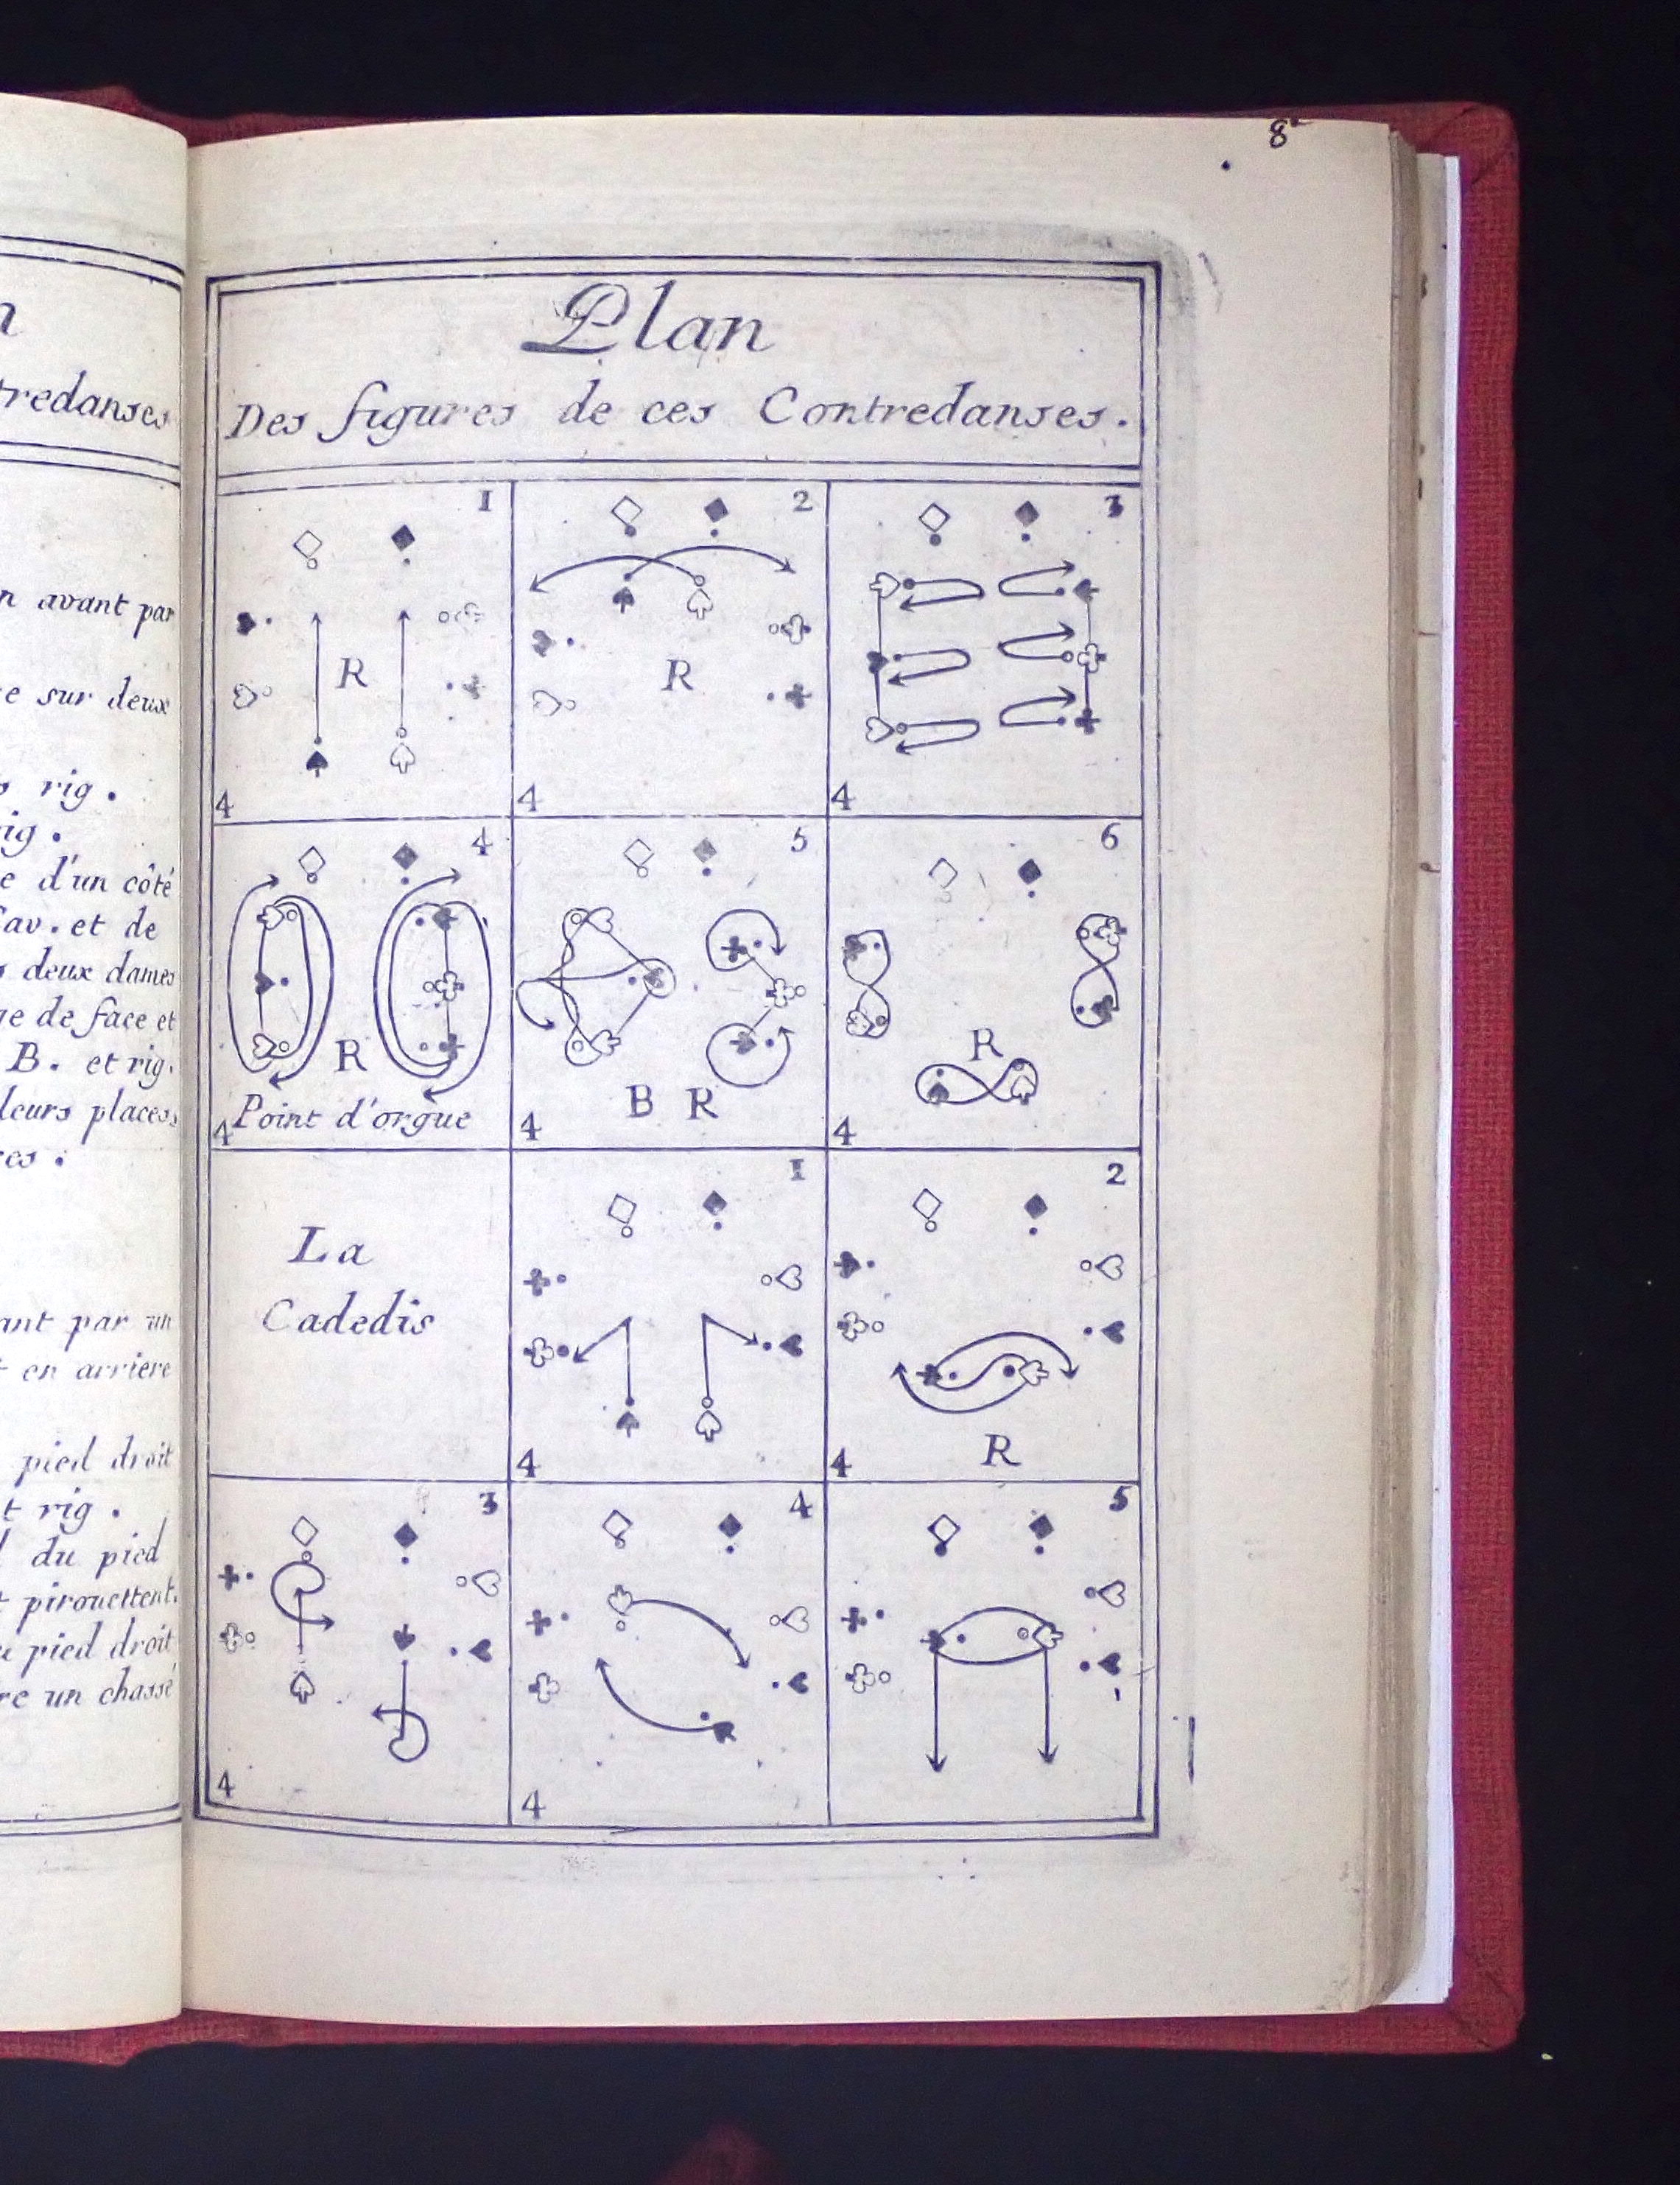 n
tredanses
n avant par
e sur deux
s rig.
rig.
e d'un côté
Cav. et de
s deux dames
ge de face et
B. et rig.
leurs places,
ces.
ant par un
t en arriere
pied droit
t rig.
l du pied
t pirouettent.
u pied droit
re un chassé
8
Plan
Des figures de ces Contredanses.
1
R
4
2
R
4
3
4
4
R
Point d'orgue
4
5
B R
4
6
R
4
La
Cadedis
1
4
2
R
4
3
4
4
4
5